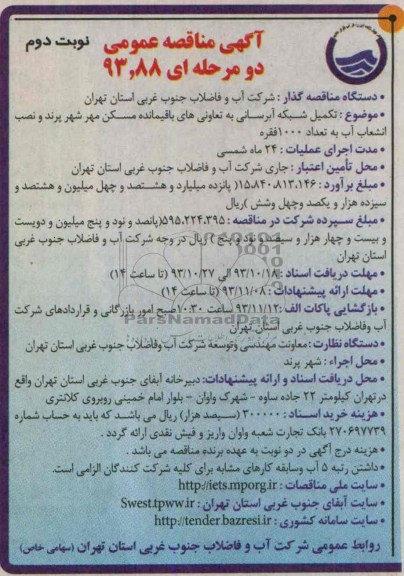 آگهی مناقصه عمومی
نوبت دوم
دو مرحله ای ۹۳،۸۸
• دستگاه مناقصه گذار : شرکت آب و فاضلاب جنوب غربی استان تهران
• موضوع : تکمیل شبکه آبرسانی به تعاونی های باقیمانده مسکن مهر شهر پرند و نصب
انشعاب آب به تعداد ۱۰۰۰ فقره
• مدت اجرای عملیات : ۲۴ ماه شمسی
• محل تأمین اعتبار : جاری شرکت آب و فاضلاب جنوب غربی استان تهران
• مبلغ برآورد : ۱۵،۸۴۰،۸۱۳،۱۴۶( پانزده میلیارد و هشتصد و چهل میلیون و هشتصد و
سیزده هزار و یکصد وچهل وشش )ریال
• مبلغ سپرده شرکت در مناقصه : ۵۹۵،۲۲۴،۳۹۵(پانصد و نود و پنج میلیون و دویست
و بیست و چهار هزار و سیصد و نود و پنج ) ریال در وجه شرکت آب و فاضلاب جنوب غربی
استان تهران
• مهلت دریافت اسناد : ۹۳/۱۰/۱۸ الی ۹۳/۱۰/۲۷ (تا ساعت ۱۴)
• مهلت ارائه پیشنهادات : ۹۳/۱۱/۰۸ (تا ساعت ۱۴)
• بازگشایی پاکات الف : ۹۳/۱۱/۱۲ ساعت ۱۰:۳۰صبح امور بازرگانی و قراردادهای شرکت
آب وفاضلاب جنوب غربی استان تهران
ParsNamadData
• دستگاه نظارت : معاونت مهندسی وتوسعه شرکت آب وفاضلاب جنوب غربی استان تهران
• محل اجراء : شهر پرند
• محل دریافت اسناد و ارائه پیشنهادات: دبیرخانه آبفای جنوب غربی استان تهران واقع
درتهران کیلومتر ۲۲ جاده ساوه - شهرک واوان - بلوار امام خمینی روبروی کلانتری
• هزینه خرید اسناد : ۳۰۰۰۰۰ (سیصد هزار) ریال می باشد که باید به حساب شماره
۲۷۰۶۹۷۷۳۹ بانک تجارت شعبه واوان واریز و فیش نقدی ارائه گردد .
• هزینه درج آگهی در دو نوبت به عهده برنده مناقصه می باشد .
• داشتن رتبه ۵ آب وسابقه کارهای مشابه برای کلیه شرکت کنندگان الزامی است.
• سایت ملی مناقصات : http://iets.mporg.ir
• سایت آبفای جنوب غربی استان تهران : Swest.tpww.ir
• سایت سامانه کشوری : http://tender.bazresi.ir
روابط عمومی شرکت آب و فاضلاب جنوب غربی استان تهران (سهامی خاص)